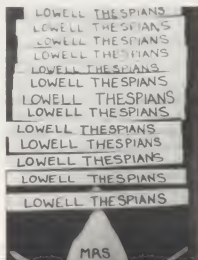 LOWELL THESPIANS
LOWELL THESPIANS
LOWELL THESPIANS
LOWELL THESPIANS
LOWELL THESPIANS
LOWELL THESPIANS
LOWELL THESPIANS
LOWELL THESPIANS
LOWELL THESPIANS
LOWELL THESPIANS
LOWELL THESPIANS
LOWELL THESPIANS
LOWELL THESPIANS
MRS